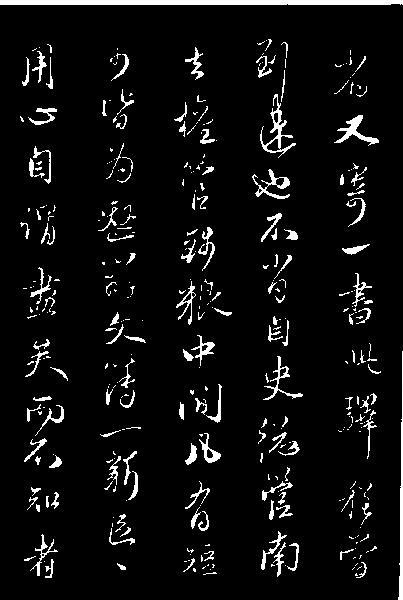 省又寄一書此驛程當
到達也不肖自史總管南
去權管錢糧中間凡有短
少皆為整文簿一新區〻
用心自謂盡矣而不知者